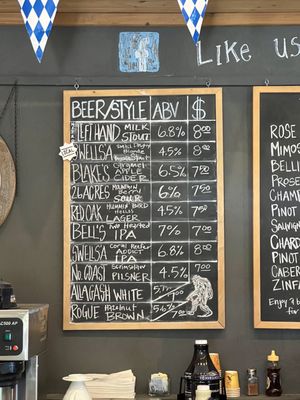 Like us
BEER/STYLE ABV $
LEFT HAND MILK STOUT 6.8% 8.00
SWELLSA 4.5% 8.00
BLAKE'S CARAMEL APPLE CIDER 6.5% 7.50
26 ACRES MOUNTAIN BERRY SOUR 6% 7.50
RED OAK HUMMIN' BIRD HELLES LAGER 4.5% 7.50
BELL'S TWO HEARTED IPA 7% 7.50
SWELLSA CORAL REEFER ADDICT IPA 6.8% 8.00
NO. COAST SCRIMSHAW PILSNER 4.5% 7.00
ALLAGASH WHITE
ROGUE HAZELNUT BROWN 5.6%
ROSE
MIMOS
BELLI
PROSE
CHAM
PINOT
SAUVIG
CHARD
PINOT
CABER
ZINFA
Enjoy